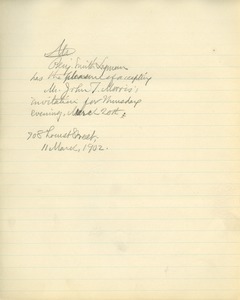 Benj. Smith Lyman
has the pleasure of accepting
Mr. John T. Morris's
invitation for Thursday
evening, March 20th;
708 Locust Street,
11 March, 1902.